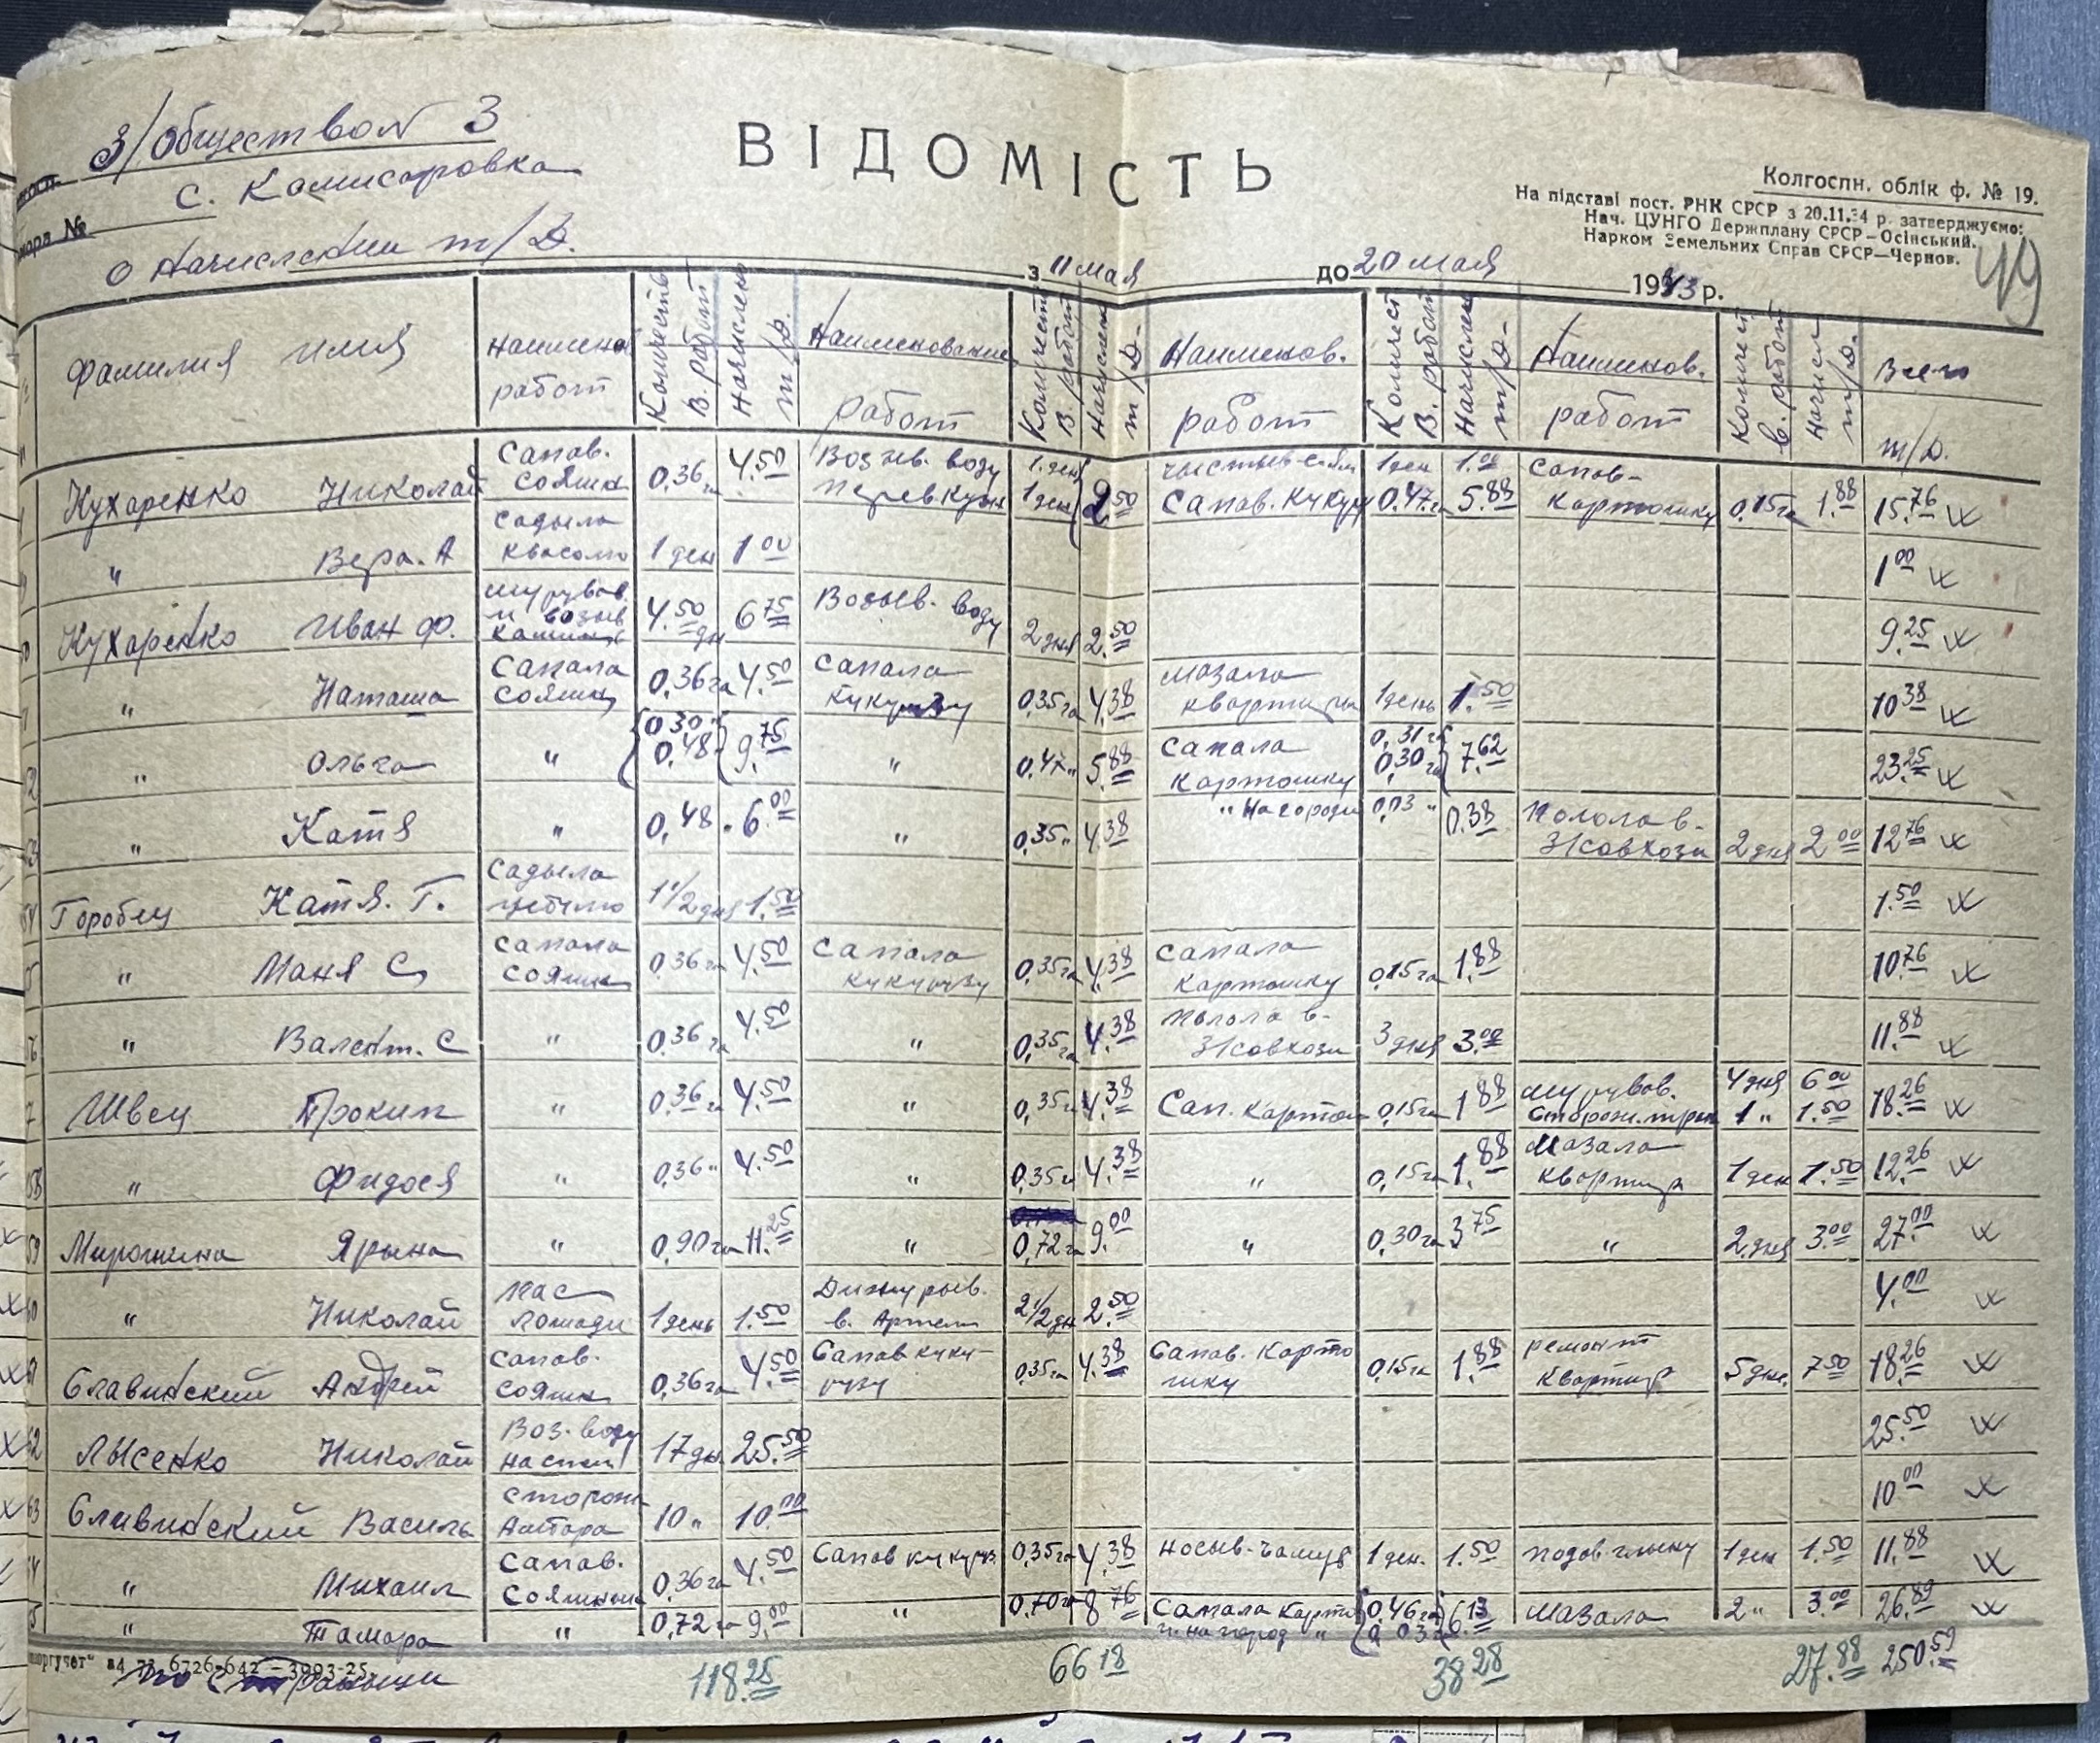 З/Обществом 3
ВІДОМІСТЬ
с. Комисаровка
Колгоспн. облік ф. № 19.
На підставі пост. РНК СРСР з 20.11.34 р. затверджуємо:
Нач. ЦУНГО Держплану СРСР—Осінський.
Нарком Земельних Справ СРСР—Чернов.
49
№
о начислении т/д.
з 11 мая до 20 мая 1943 р.
Фамилия имя
Наименов работ
Количеств в. работ
Начислен т/д.
Наименование работ
Количеств в. работ
Начислен т/д.
Наименов. работ
Количест в. работ
Начислен т/д.
Наименов. работ
Количест в. работ
Начисл т/д.
Всего т/д.
Кухаренко Николай Сапав. сояшн 0,36 га 4.50 Возив. воду 1. день 1 ден 2.50 чистив 1 ден 1.00 Сапав. кукур 0.47 га 5.88 сапав- картошку 0,15 га 1.88 15.76
" Вера. А садыла квасолю 1 ден 1 00 1 00
Кухаренко Иван Ф. мурував. и возив камень 4.50 дн 6 75 Возыв. воду 2 дня 2.50 9.25
" Наташа Сапала сояшн 0,36 га 4.50 сапала кукурзу 0,35 га 4.38 мазала квартиры 1 день 1.50 10 38
" Ольга " 0,30 0,48 9.75 " 0.47 " 5.88 сапала картошку 0,31 га 0,30 га 7.62 23.25
" Катя " 0,48 " 6.00 " 0,35 " 4.38 " на городи 0,03 " 0.38 полола в- З/совхози 2 дня 2 00 12 76
Горобец Катя. Г. садыла 1 1/2 дня 1.50 1.50
" Маня С сапала сояшн 0,36 га 4.50 сапала кукурузу 0,35 га 4.38 сапала картошку 0,15 га 1.88 10.76
" Валент. С " 0.36 га 4.50 " 0,35 га 4.38 полола в- З/совхози 3 дня 3.00 11.88
Швец Прокип " 0.36 га 4.50 " 0,35 га 4.38 Сап. картош 0,15 га 1 88 мурував. 4 дня 6 00 сторож. 1 " 1.50 18.26
" Фидося " 0,36 " 4.50 " 0,35 га 4.38 " 0,15 га 1.88 мазала квартир 1 ден 1.50 12.26
Мирошина Ярына " 0,90 га 11.25 " 0,72 га 9.00 " 0,30 га 3 75 " 2 дня 3.00 27.00
" Николай пас лошади 1 день 1.50 Дижурыв. в. Артели 2 1/2 дн 2.50 4.00
Славинский Андрей сапав. сояшн 0,36 га 4.50 Сапав куку- рузу 0.35 га 4.38 Сапав. карто шку 0,15 га 1.88 ремонт квартир 5 дне. 7 50 18.26
Лысенко Николай Воз. воду на степ 17 дн. 25.50 25.50
Славинский Василь сторож Амбара 10 " 10.00 10 00
" Михаил Сапав. Сояшныки 0,36 га 4.50 Сапав кукуруз 0,35 га 4.38 носыв- 1 ден. 1.50 подав. глыну 1 ден 1.50 11.88
" Тамара " 0,72 га 9.00 " 0,70 га 8 76 Сапала карто на город " 0,46 га 0 03 га 6.13 мазала 2 " 3.00 26.89
6726-642—3993-25.
118.25 66 18 38 28 27.88 250.59